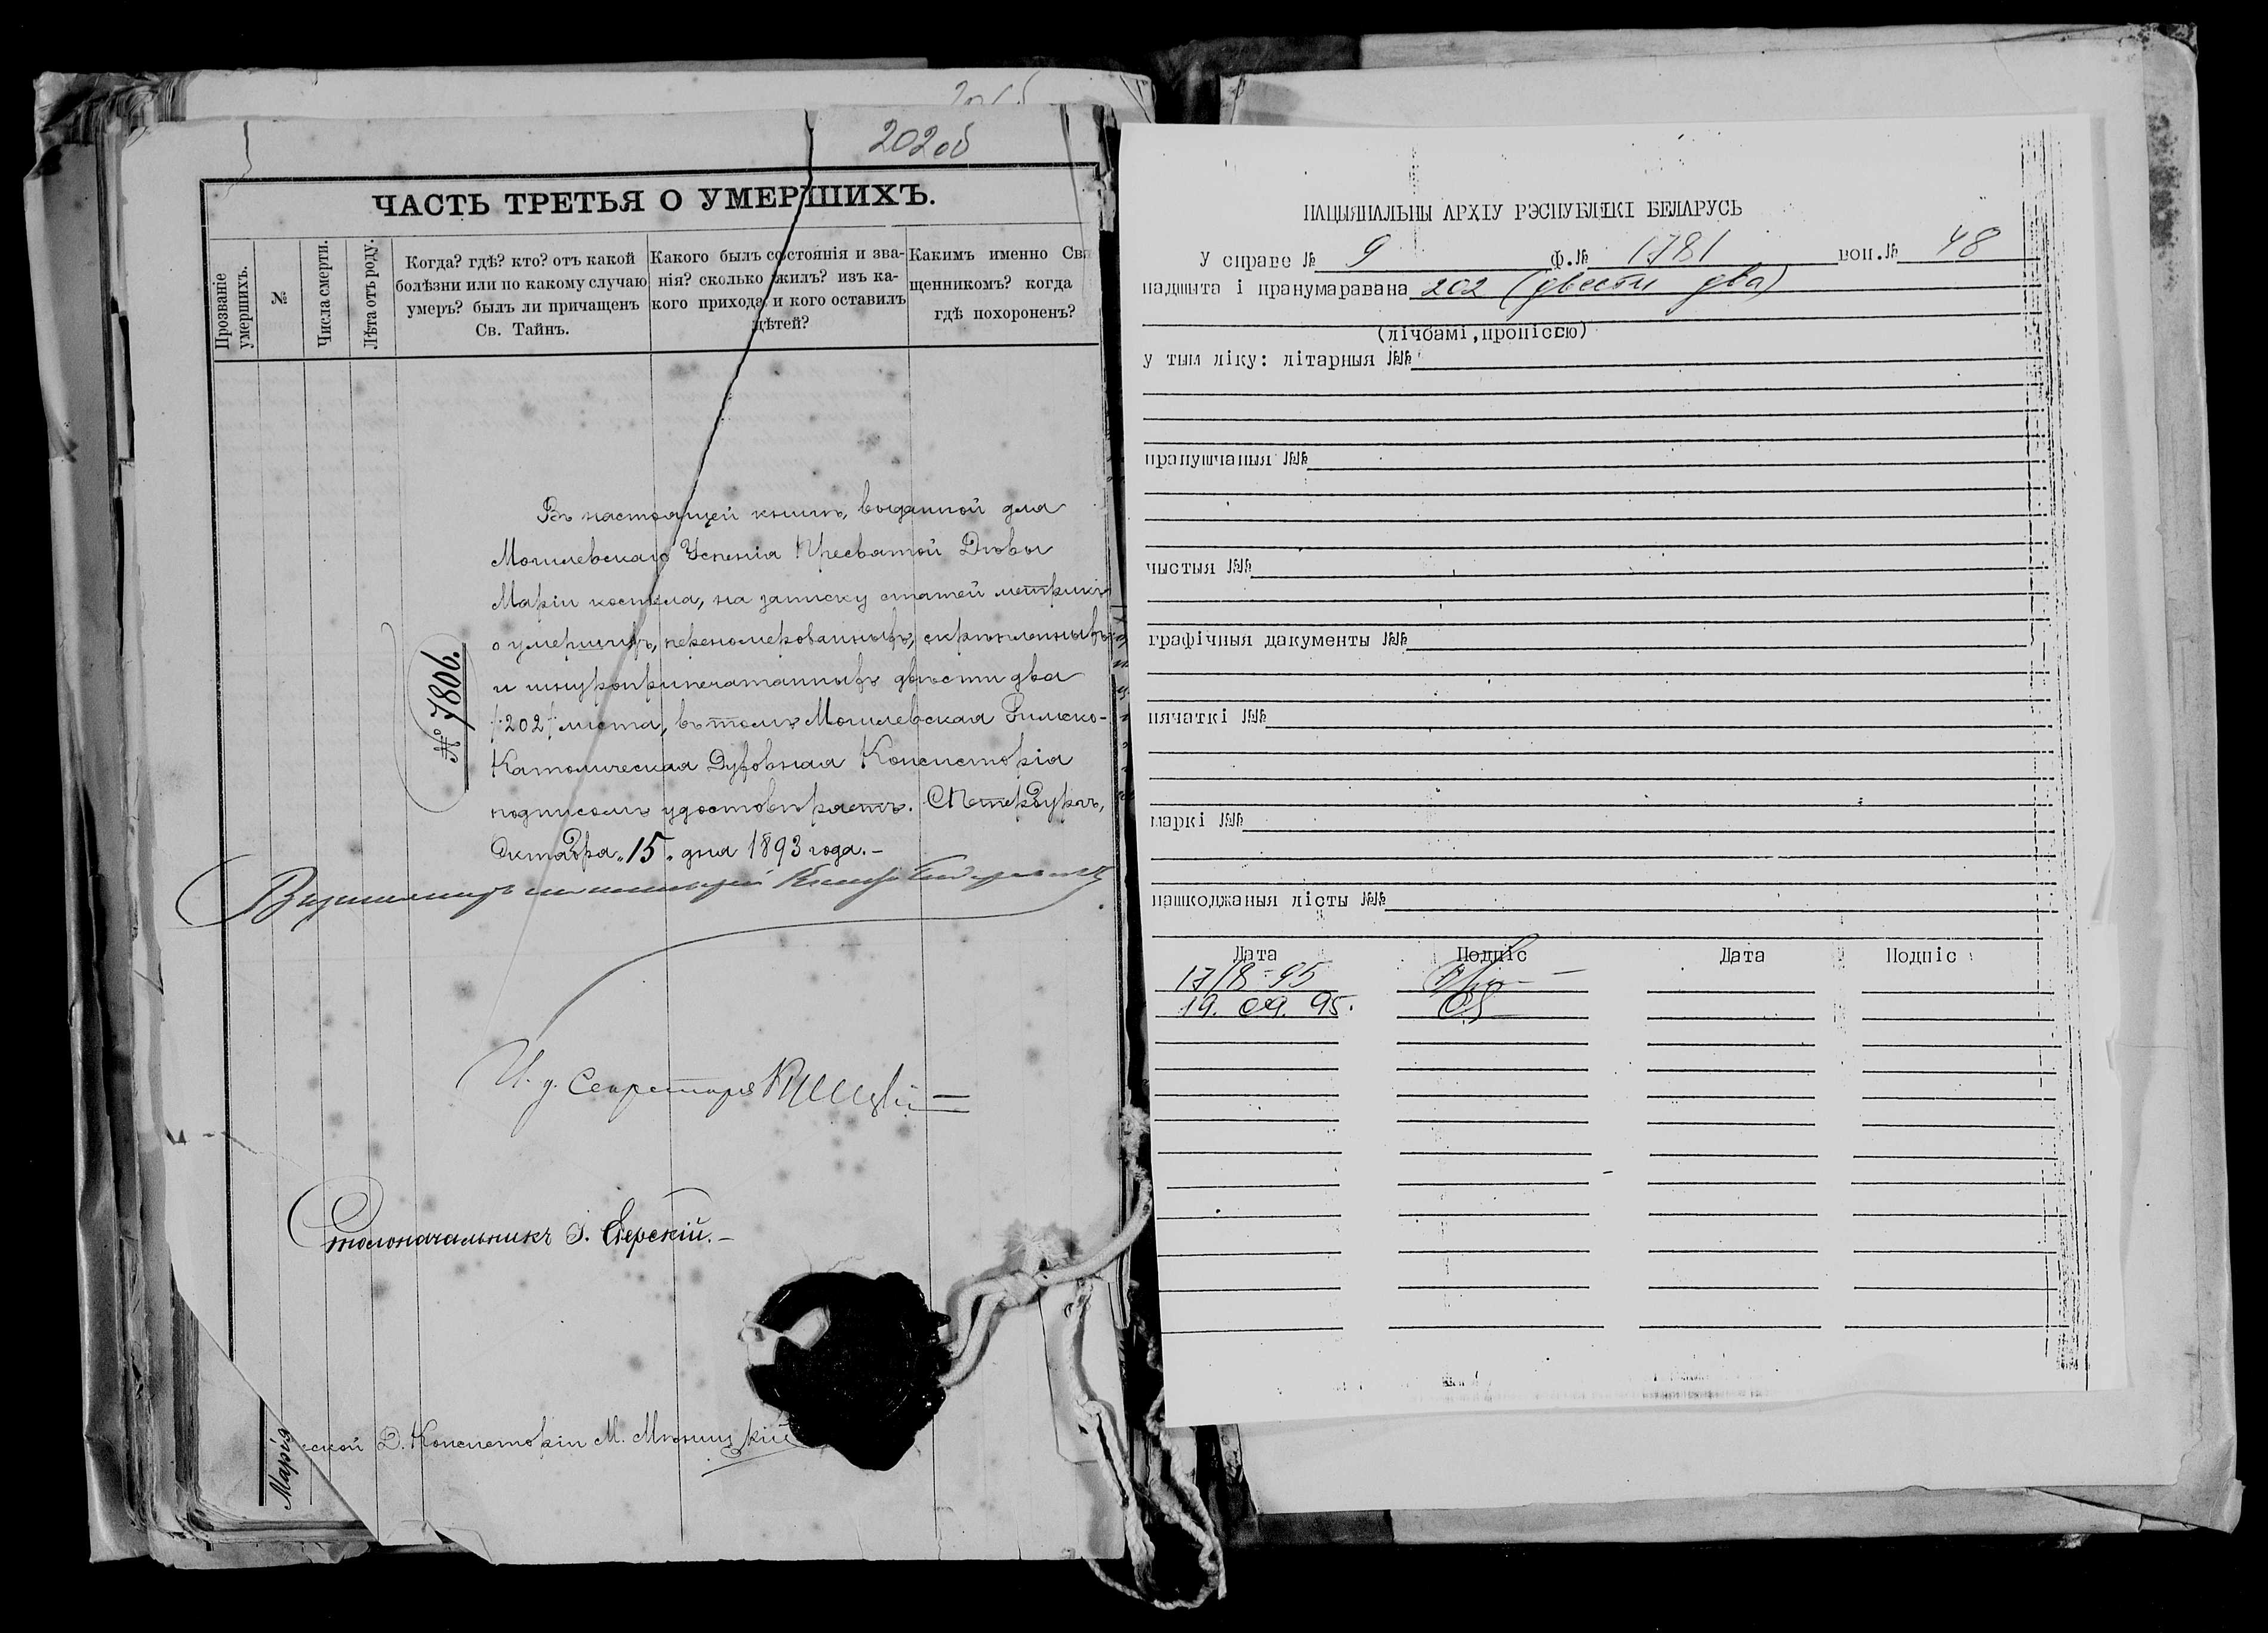 202 об
ЧАСТЬ ТРЕТЬЯ О УМЕРШИХЪ.
Прозваніе умершихъ.
№
Числа смерти.
Лѣта отъ роду.
Когда? гдѣ? кто? отъ какой
болѣзни или по какому случаю
умеръ? былъ ли причащенъ
Св. Тайнъ.
Какого былъ состоянія и зва-
нія? сколько жилъ? изъ ка-
кого прихода, и кого оставилъ
дѣтей?
Какимъ именно Свя
щенникомъ? когда
гдѣ похороненъ?
Въ настоящей книгѣ, выданной для
Могилевскаго Успенія Пресвятой Дѣвы
Маріи костела, на записку статей метрикъ
о умершихъ, переномерованныхъ, скрѣпленныхъ
и шнуроприпечатанныхъ двѣсти два
/202/ листа, въ томъ Могилевская Римско-
Католическая Духовная Консисторія
подписомъ удостовѣряетъ. СПетербургъ,
Октября „15„ дня 1893 года.–
№ 7806.
И. д. Секретаря
Столоначальникъ
ской Д. Консисторіи М.
Марія
НАЦЫЯНАЛЬНЫ АРХІУ РЭСПУБЛІКІ БЕЛАРУСЬ
У справе № 9 ф.№ 1781 воп.№ 48
падшыта і пранумаравана 202 (двести два)
(лічбамі, пропісcю)
у тым ліку: літарныя №№
прапушчаныя №№
чыстыя №№
графічныя дакументы №№
пячаткі №№
маркі №№
пашкоджаныя лісты №№
Дата Подпіс Дата Подпіс
17/8-95
19. 09. 95.